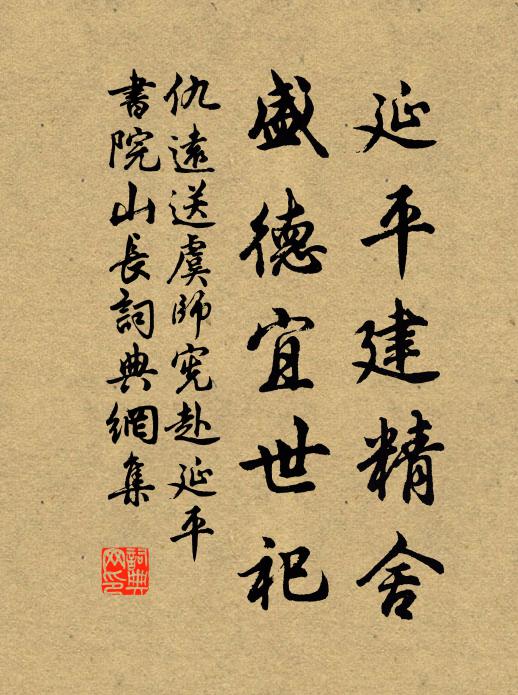 延平建精舍
盛德宜世祀
仇遠送虞師㝹赴延平
書院山長詞典網集
詞典網印